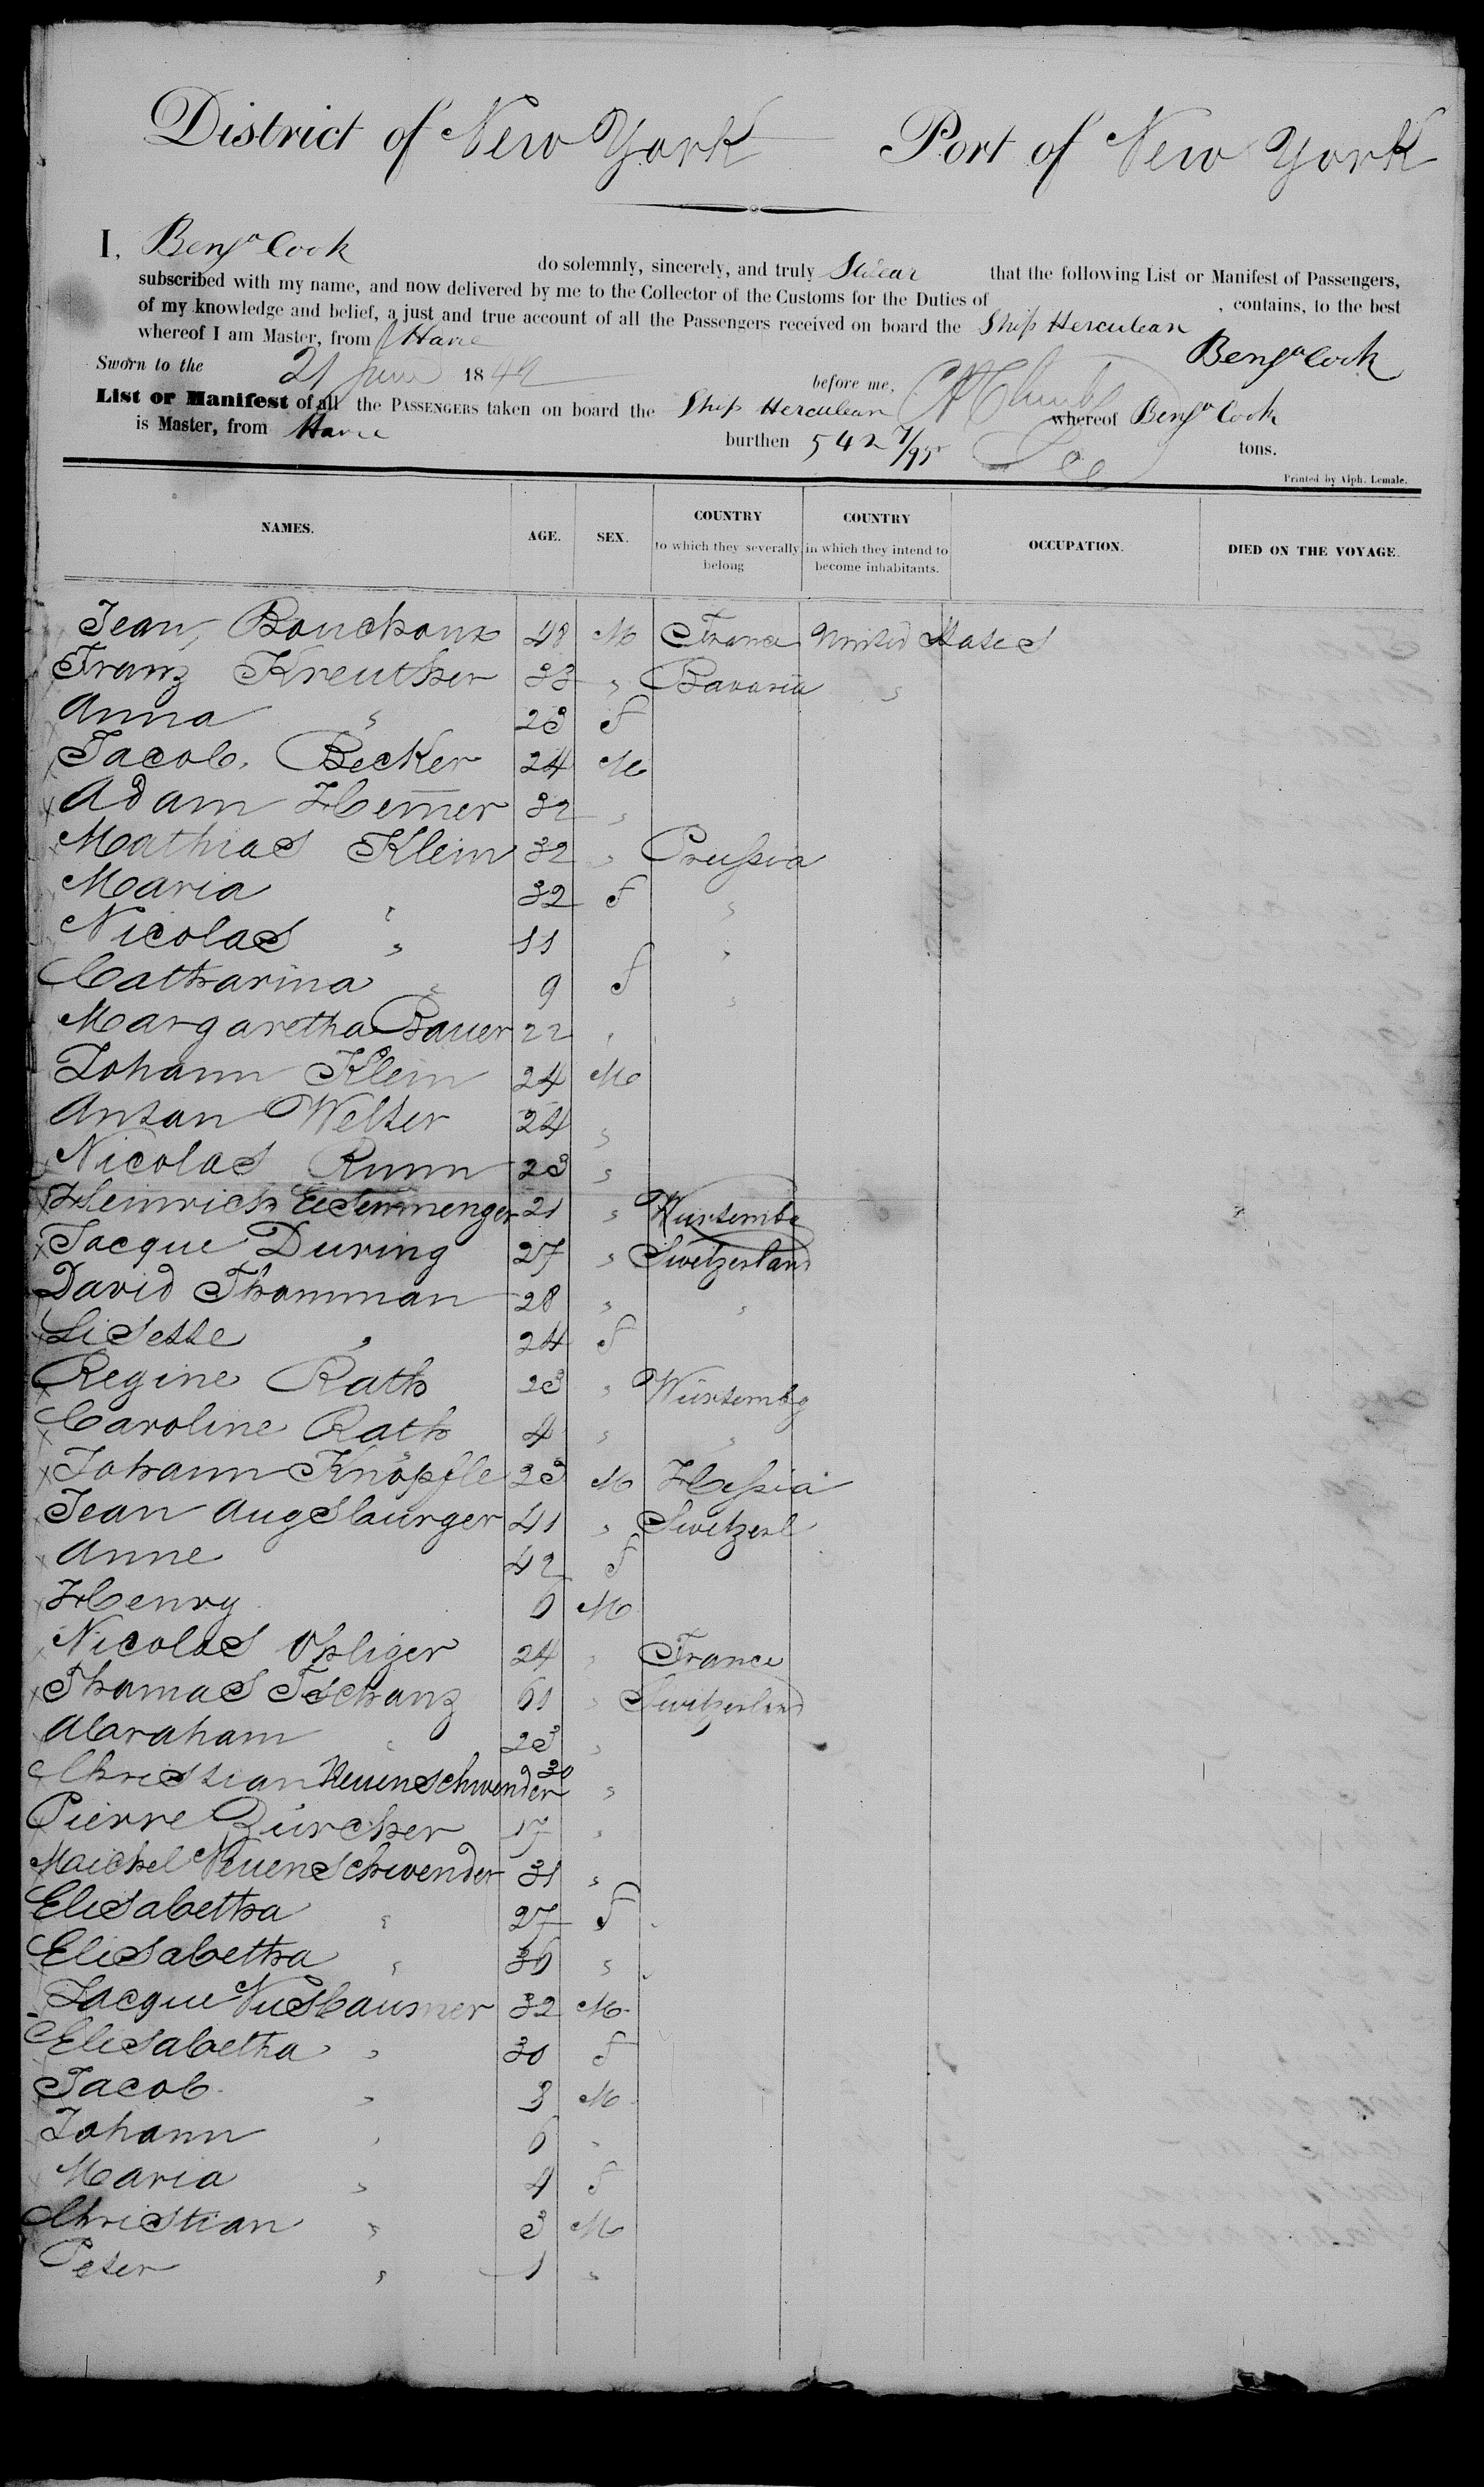 District of New York Port of New York
I, Benjn Cook do solemnly, sincerely, and truly Swear that the following List or Manifest of Passengers,
subscribed with my name, and now delivered by me to the Collector of the Customs for the Duties of , contains, to the best
of my knowledge and belief, a just and true account of all the Passengers received on board the Ship Herculean
whereof I am Master, from Havre
Benjn Cook
Sworn to the 21 June 1849 before me,
List or Manifest of all the PASSENGERS taken on board the Ship Herculean whereof Benjn Cook
is Master, from Havre burthen 542 7/95 tons.
Printed by Alph. Lemale.
NAMES. AGE. SEX. COUNTRY to which they severally belong COUNTRY in which they intend to become inhabitants. OCCUPATION. DIED ON THE VOYAGE.
Jean Bouchoux 48 M France United States
Franz Kreuther 33 " Bavaria "
Anna " 23 f
Jacob Becker 24 M
Adam Hem̅er 32 "
Mathias Klein 32 " Prussia
Maria " 32 f "
Nicolas " 11 "
Catharina " 9 f "
Margaretha Bauer 22 "
Johann Klein 24 M
Antan Welter 24 "
Nicolas Runn 23 "
Heinrich Eisenmenger 21 " Würtembg
Jacque During 27 " Switzerland
David Thomman 28 " "
Lisette " 24 f
Regine Rath 23 " Würtembg
Caroline Rath 4 " "
Johann Knöpfle 23 M Hessia
Jean Augsburger 41 " Switzerl
Anne 42 f
Henry 6 M
Nicolas Opliger 24 " France
Thomas Tschanz 61 " Switzerland
Abraham " 23 "
Christian Neuenschwender 30 "
Pierre Zürcher 17 "
Maichel Neuenschwender 31 "
Elisabetha " 27 f
Elisabetha " 36 "
Jacque Nusbaumer 32 M
Elisabetha " 30 f
Jacob " 8 M
Johann " 6 "
Maria " 4 f
Christian " 3 M
Peter " 1 "